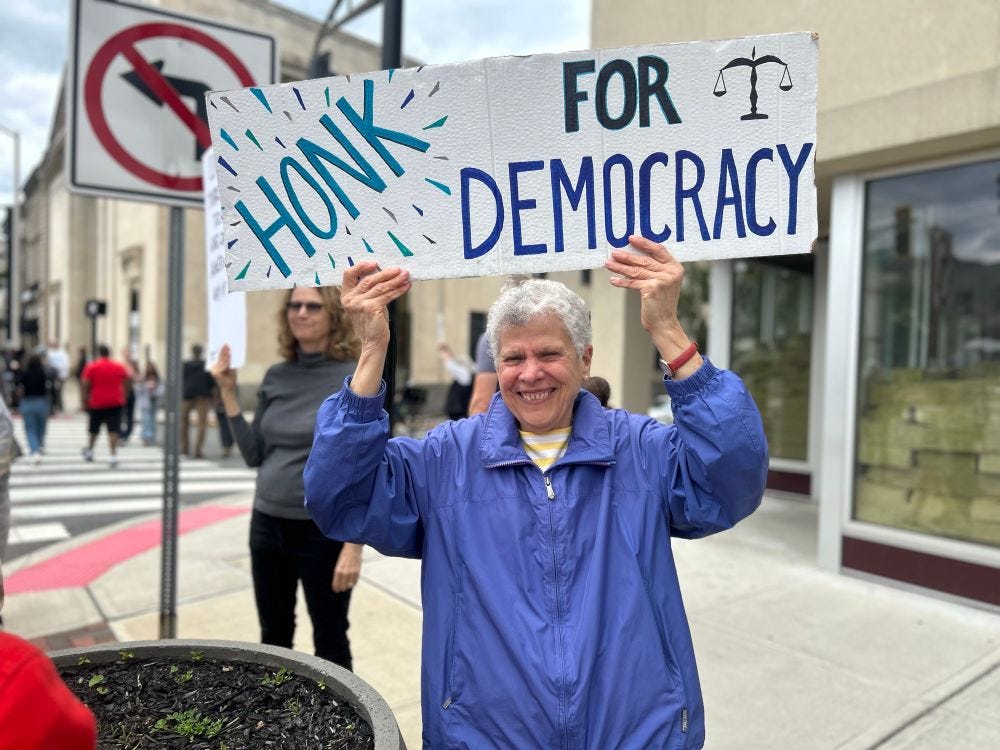 HONK FOR
DEMOCRACY